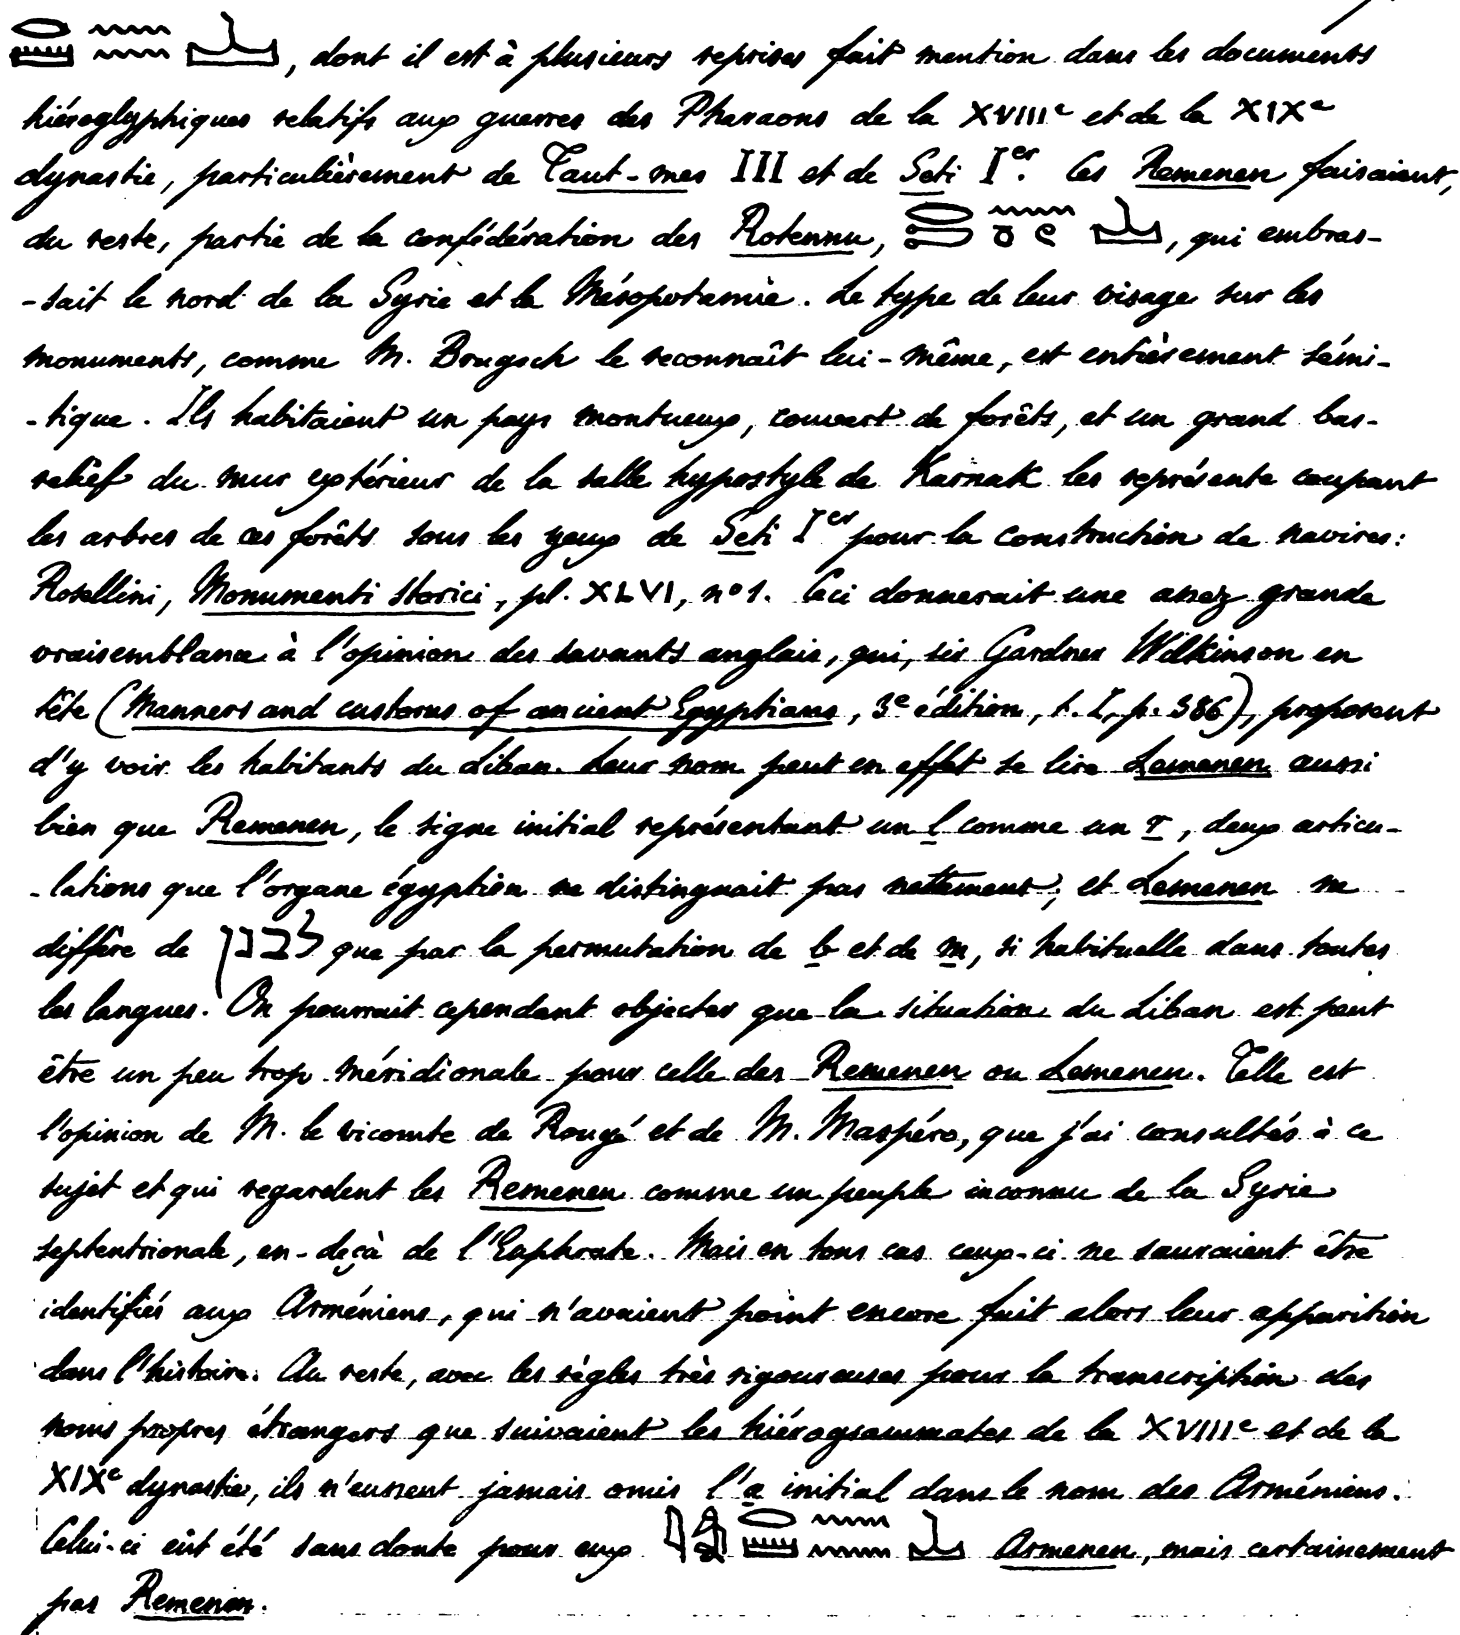 𓂋𓏠𓈖𓈖𓈉, dont il est à plusieurs reprises fait mention dans les documents
hiéroglyphiques relatifs aux guerres des Pharaons de la XVIIIe et de la XIXe
dynastie, particulièrement de Taut-mes III et de Seti Ier. Ces Remenen faisaient,
du reste, partie de la confédération des Rotennu, qui embras-
-sait le nord de la Syrie et la Mésopotamie. Le type de leur visage sur les
monuments, comme M. Brugsch le reconnaît lui-même, est entièrement sémi-
-tique. Ils habitaient un pays montueux, couvert de forêts, et un grand bas-
relief du mur extérieur de la salle hypostyle de Karnak les représente coupant
les arbres de ces forêts sous les yeux de Seti Ier pour la construction de navires:
Rosellini, Monumenti storici, pl. XLVI, nº 1. Ceci donnerait une assez grande
vraisemblance à l'opinion des savants anglais, qui, sir Gardner Wilkinson en
tête (Manners and customs of ancient Egyptians, 3e édition, t. I, p. 386), proposent
d'y voir les habitants du Liban. Leur nom peut en effet se lire Lemenen aussi
bien que Remenen, le signe initial représentant un l comme un r, deux articu-
-lations que l'organe égyptien ne distinguait pas nettement; et Lemenen ne
diffère de לבנן que par la permutation de b et de m, si habituelle dans toutes
les langues. On pourrait cependant objecter que la situation du Liban est peut
être un peu trop méridionale pour celle des Remenen ou Lemenen. Telle est
l'opinion de M. le vicomte de Rougé et de M. Maspéro, que j'ai consultés à ce
sujet et qui regardent les Remenen comme un peuple inconnu de la Syrie
septentrionale, en-deçà de l'Euphrate. Mais en tous cas ceux-ci ne sauraient être
identifiés aux Arméniens, qui n'avaient point encore fait alors leur apparition
dans l'histoire. Au reste, avec les règles très rigoureuses pour la transcription des
noms propres étrangers que suivaient les hiérogrammates de la XVIIIe et de la
XIXe dynastie, ils n'eussent jamais omis l'a initial dans le nom des Arméniens.
Celui-ci eût été sans doute pour eux 𓇋𓀁𓂋𓏠𓈖𓈖𓈉 Armenen, mais certainement
pas Remenen.